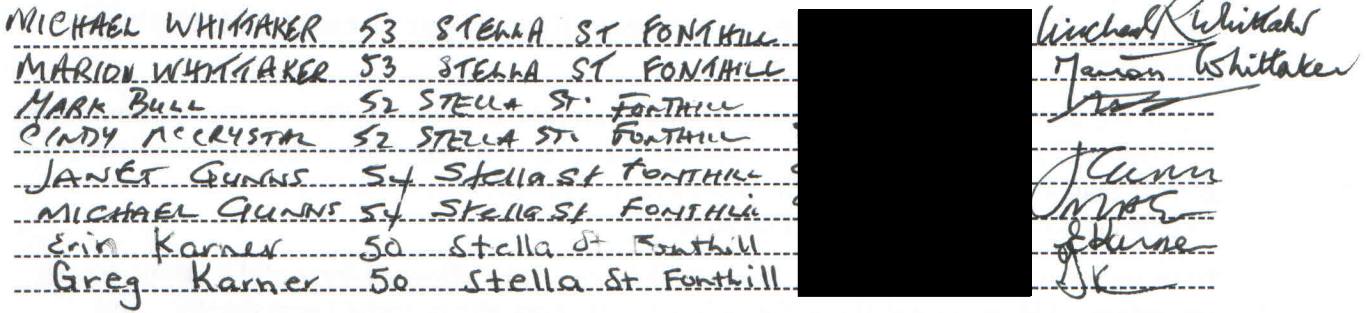 MICHAEL WHITTAKER 53 STELLA ST FONTHILL Michael Whittaker
MARION WHITTAKER 53 STELLA ST FONTHILL Marion Whittaker
MARK BULL 52 STELLA ST. FONTHILL
CINDY MCCRYSTAL 52 STELLA ST. FONTHILL
JANET GUNNS 54 Stella St FONTHILL JGunns
MICHAEL GUNNS 54 Stella St FONTHILL
Erin Karner 50 Stella St Fonthill EKarner
Greg Karner 50 Stella St Fonthill GK